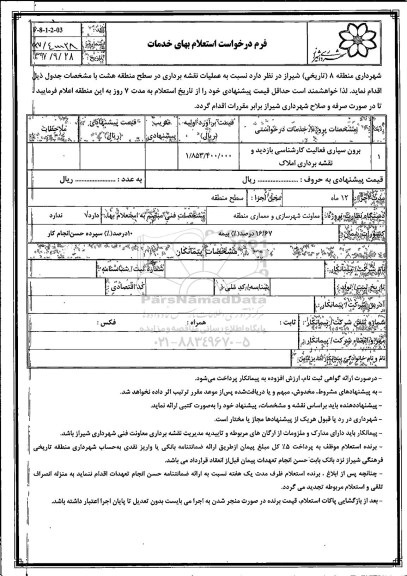 P-8-1-2-03
۱۳۹۷/۹/۲۸
فرم درخواست استعلام بهای خدمات
شهرداری منطقه ۸ (تاریخی) شیراز در نظر دارد نسبت به عملیات نقشه برداری در سطح منطقه هشت با مشخصات جدول ذیل
اقدام نماید. لذا خواهشمند است حداقل قیمت پیشنهادی خود را از تاریخ استعلام به مدت ۷ روز به این منطقه اعلام فرمایید
تا در صورت صرفه و صلاح شهرداری شیراز برابر مقررات اقدام گردد.
مشخصات پروژه/ خدمات درخواستی
قیمت برآورد اولیه (ریال)
ضریب پیشنهادی
قیمت پیشنهادی (ریال)
ملاحظات
۱
برون سپاری فعالیت کارشناسی بازدید و نقشه برداری املاک
۱/۸۵۳/۴۰۰/۰۰۰
قیمت پیشنهادی به حروف : ریال
به عدد : ریال
۱۲ ماه
محل اجرا :
سطح منطقه
معاونت شهرسازی و معماری منطقه
دارد
ندارد
۱۶/۶۷درصد(٪) بیمه
۱۰درصد(٪) سپرده حسن انجام کار
مشخصات پیمانکار
شناسه/ کد ملی
کد اقتصادی :
ثابت :
همراه :
فکس :
پایگاه اطلاع رسانی مناقصه و مزایده
۰۲۱-۸۸۳۴۹۶۷۰-۵
- درصورت ارائه گواهی ثبت نام، ارزش افزوده به پیمانکار پرداخت می‌شود.
- به پیشنهادهای مشروط، مخدوش، مبهم و یا دریافت‌شده پس‌از موعد مقرر ترتیب اثر داده نخواهد شد.
- پیشنهاددهنده باید براساس نقشه و مشخصات، پیشنهاد خود را به‌صورت کتبی ارائه نماید.
- شهرداری در رد یا قبول هریک از پیشنهادها مجاز یا مختار است.
- پیمانکار باید دارای مدارک و ملزومات از ارگان های مربوطه و تاییدیه مدیریت نقشه برداری معاونت فنی شهرداری شیراز باشد.
- برنده استعلام موظف به پرداخت ۵٪ کل مبلغ پیمان ازطریق ارائه ضمانتنامه بانکی یا واریز نقدی به‌حساب شهرداری منطقه تاریخی
فرهنگی شیراز نزد بانک بابت حسن انجام تعهدات پیمان قبل‌از انعقاد قرارداد می باشد.
- چنانچه پس از ابلاغ ، برنده استعلام ظرف مدت یک هفته نسبت به ارائه ضمانتنامه حسن انجام تعهدات اقدام ننماید به منزله انصراف
تلقی و استعلام مربوطه تجدید می گردد.
- بعد از بازگشایی پاکات استعلام، قیمت برنده در صورت منجر شدن به اجرا می بایست بدون تعدیل تا پایان اجرا اعتبار داشته باشد.